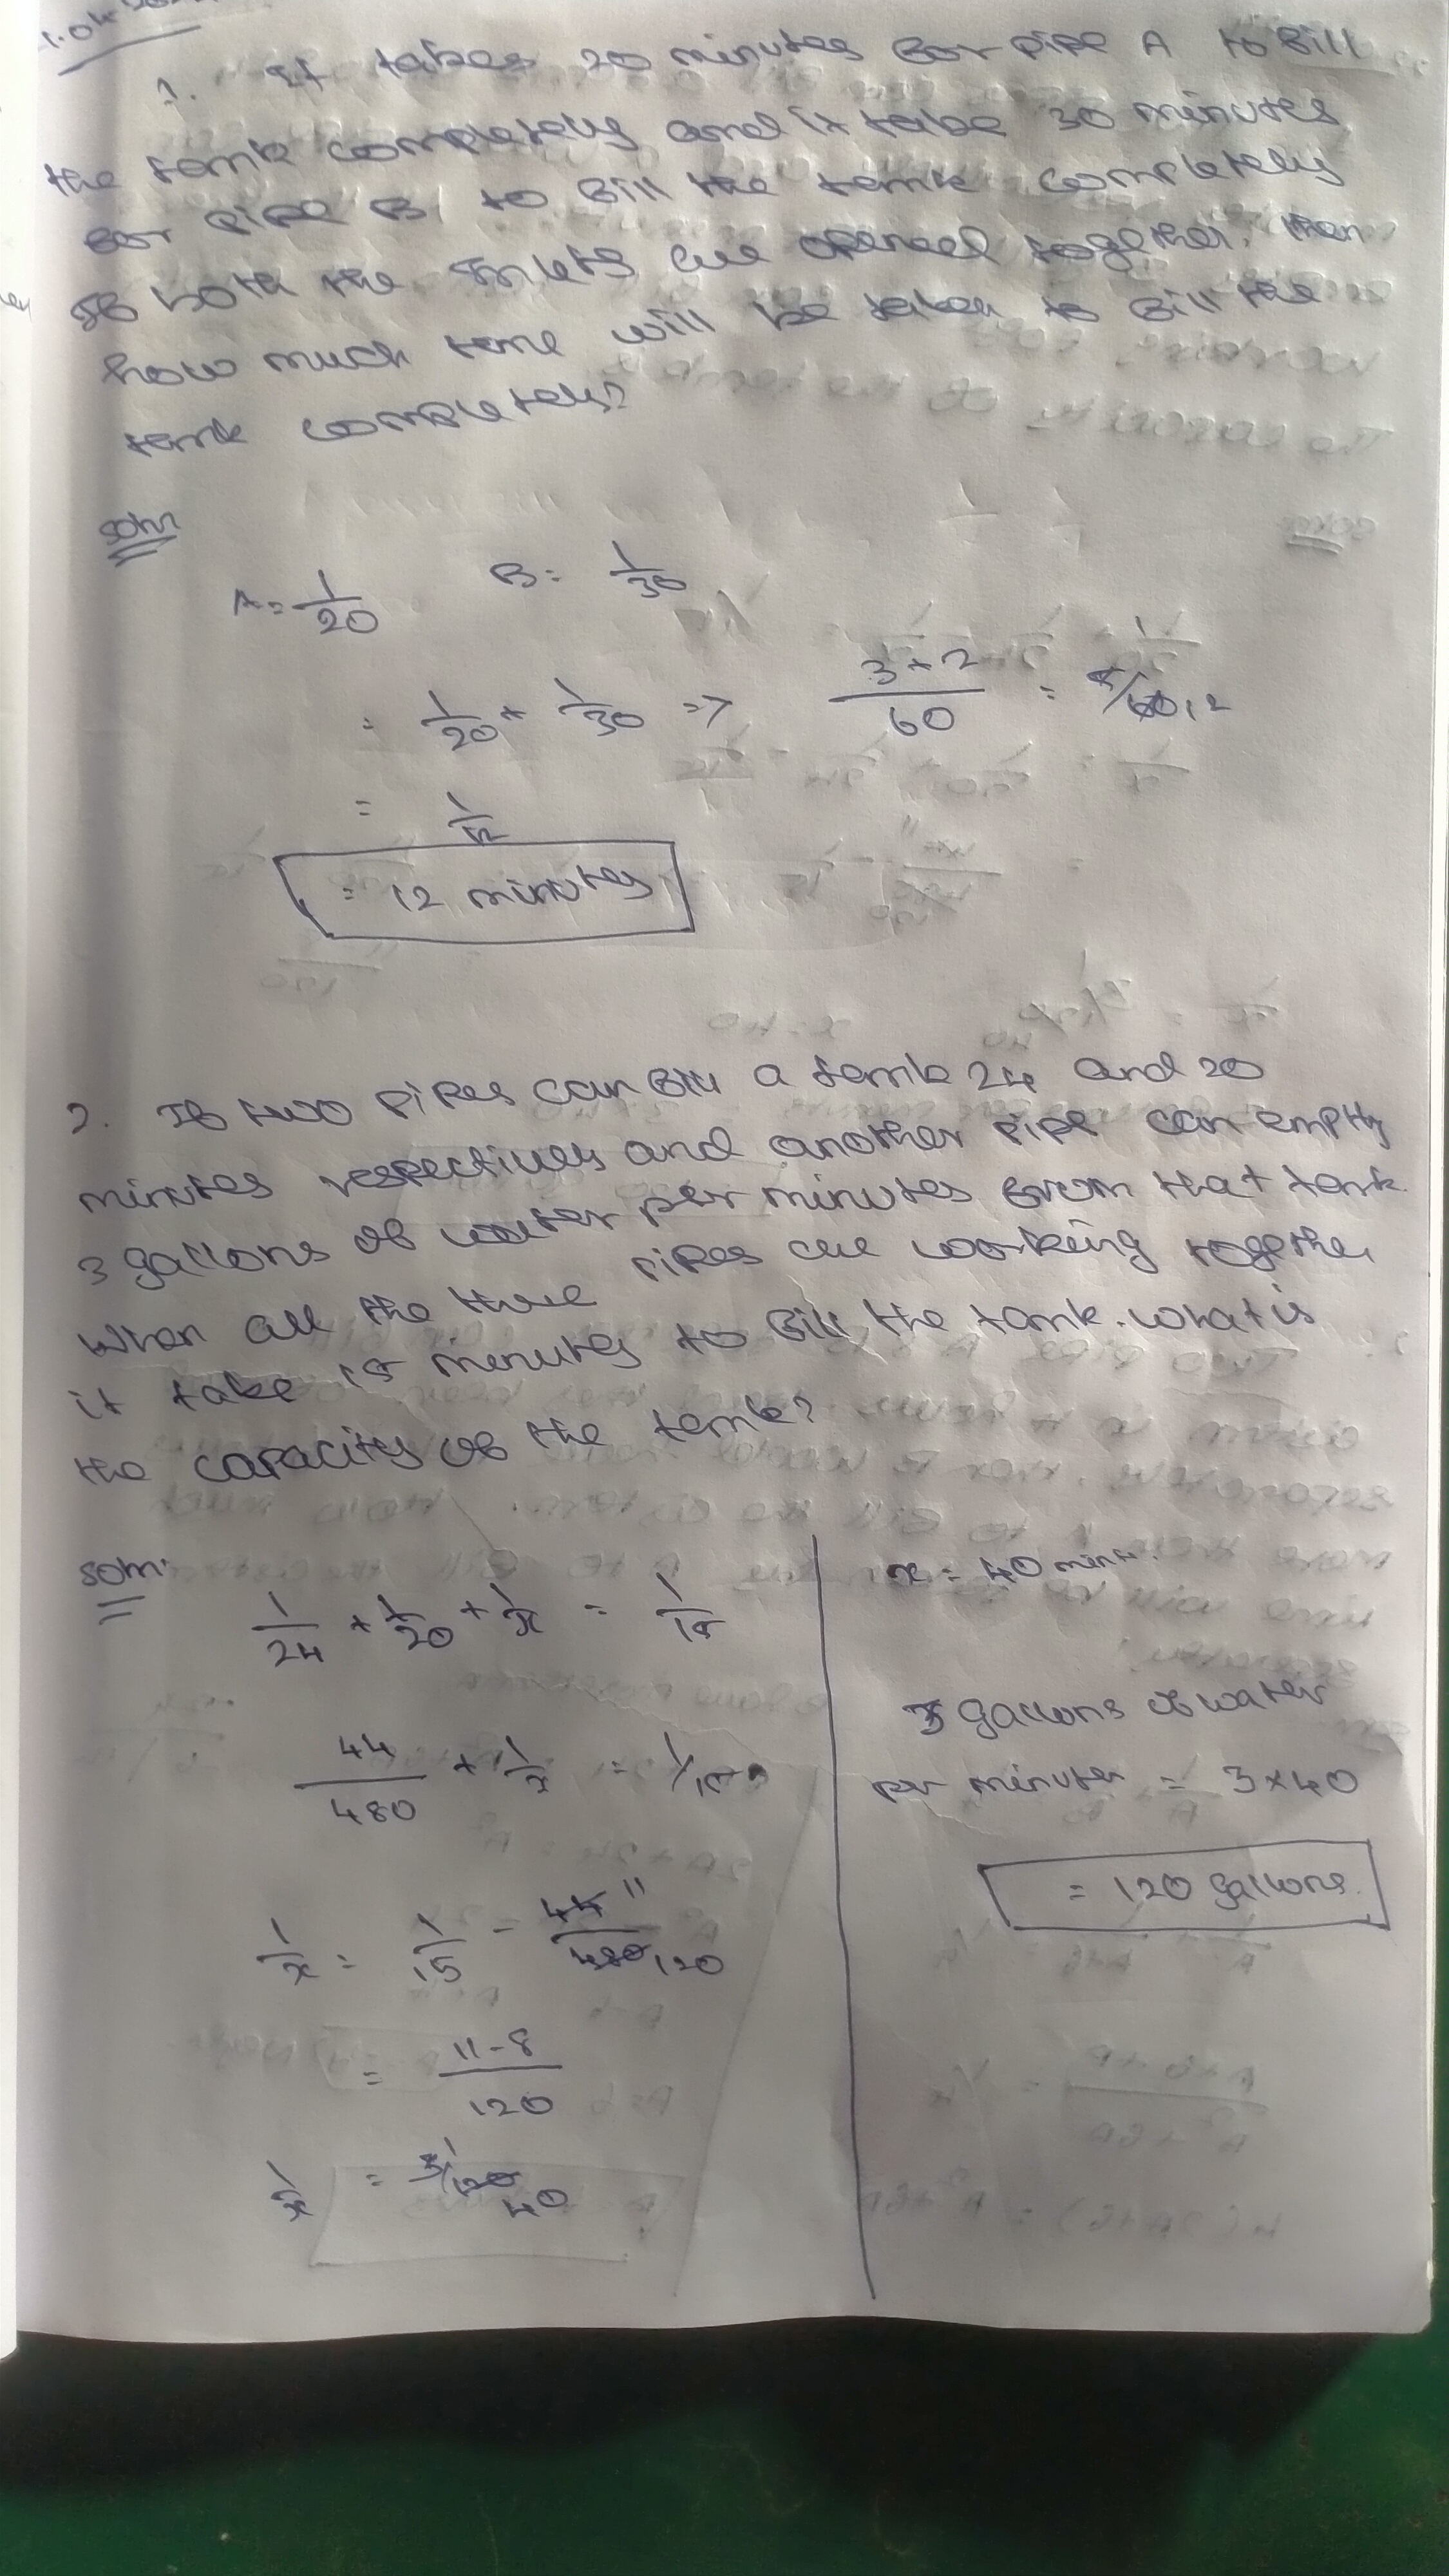 1. It takes 20 minutes for pipe A to fill
the tank completely and it take 30 minutes
for pipe B, to fill the tank completely
If both the inlets are opened together, then
how much time will be taken to fill the
tank completely?
Soln
A = 1/20 B = 1/30
= 1/20 + 1/30 => 3+2/60 = 5/60 12
= 1/12
= 12 minutes
2. If two pipes can fill a tank 24 and 20
minutes respectively and another pipe can empty
3 gallons of water per minutes from that tank.
When all the three pipes are working together
it take 15 minutes to fill the tank. what is
the capacity of the tank?
Soln:
1/24 + 1/20 + 1/x = 1/15
44/480 + 1/x = 1/15
1/x = 1/15 - 44/480 11 120
= 11-8/120
1/x = 3/120 1 40
x = 40 mint.
3 gallons of water
per minutes = 3×40
= 120 gallons.